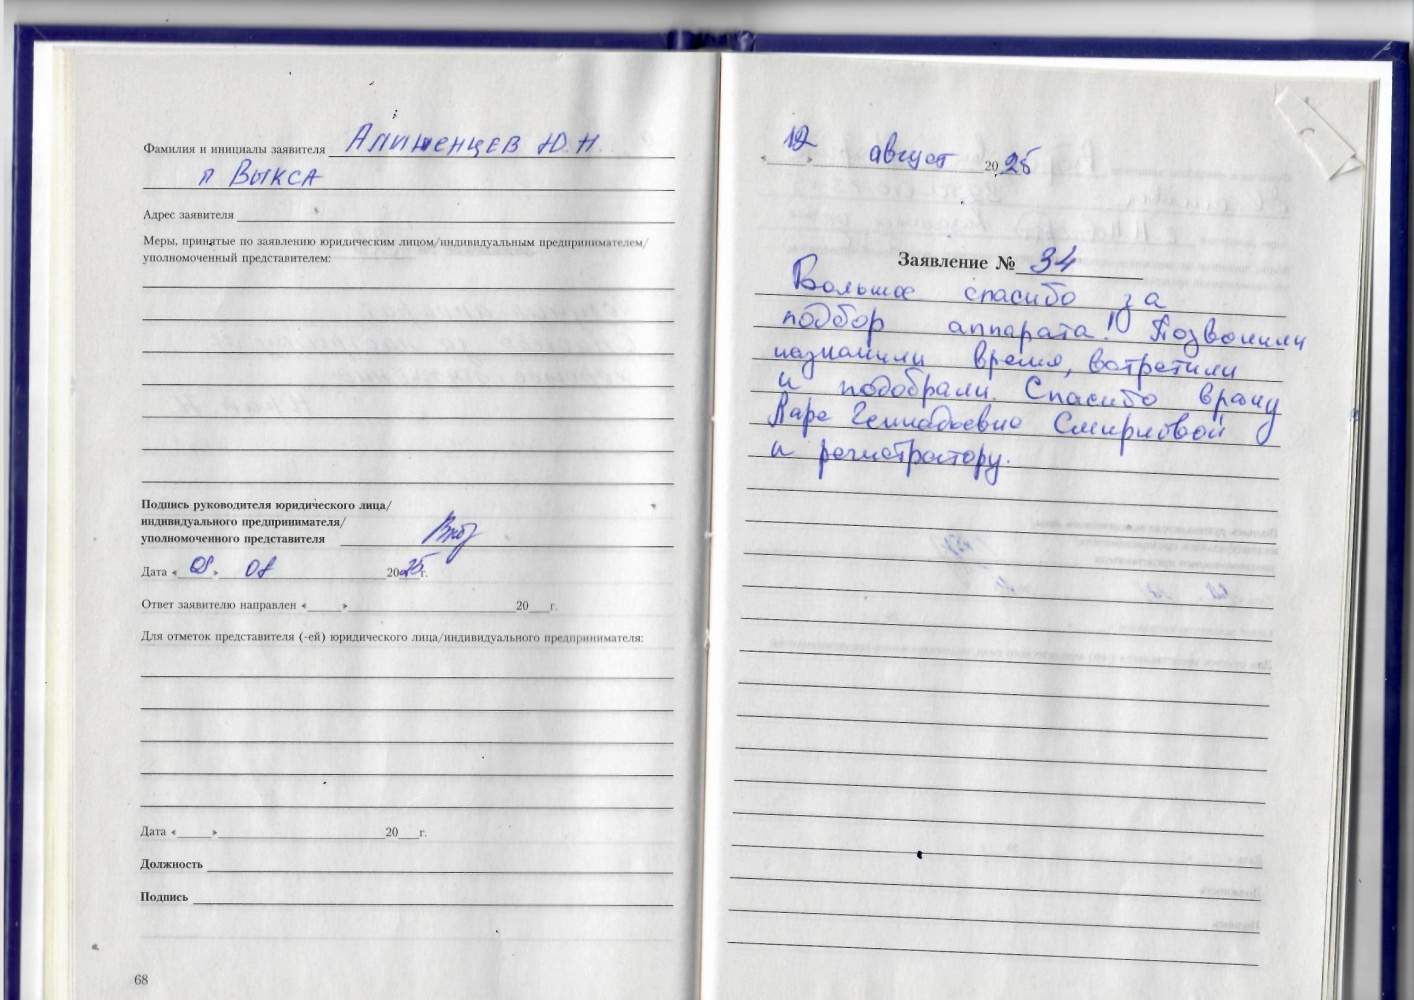 Фамилия и инициалы заявителя Алишенцев Ю. Н.
п Выкса
Адрес заявителя
Меры, принятые по заявлению юридическим лицом/индивидуальным предпринимателем/
уполномоченный представителем:
Подпись руководителя юридического лица/
индивидуального предпринимателя/
уполномоченного представителя
Дата «08» 08 2025 г.
Ответ заявителю направлен «___» 20___г.
Для отметок представителя (-ей) юридического лица/индивидуального предпринимателя:
Дата «___» 20___г.
Должность
Подпись
68
«12 август 2025
Заявление № 34
Большое спасибо за
подбор аппарата! Позвонили
назначили время, встретили
и подобрали. Спасибо врачу
Ларе Геннадьевне Смирновой
и регистратору.